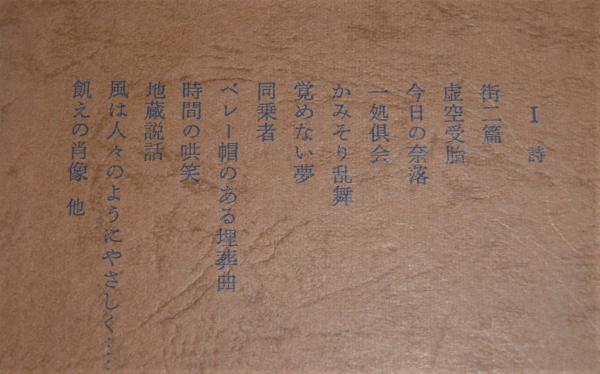 I 詩
街二篇
虚空受胎
今日の奈落
一処倶会
かみそり乱舞
覚めない夢
同乗者
ベレー帽のある埋葬曲
時間の哄笑
地蔵説話
風は人々のようにやさしく……
飢えの肖像 他